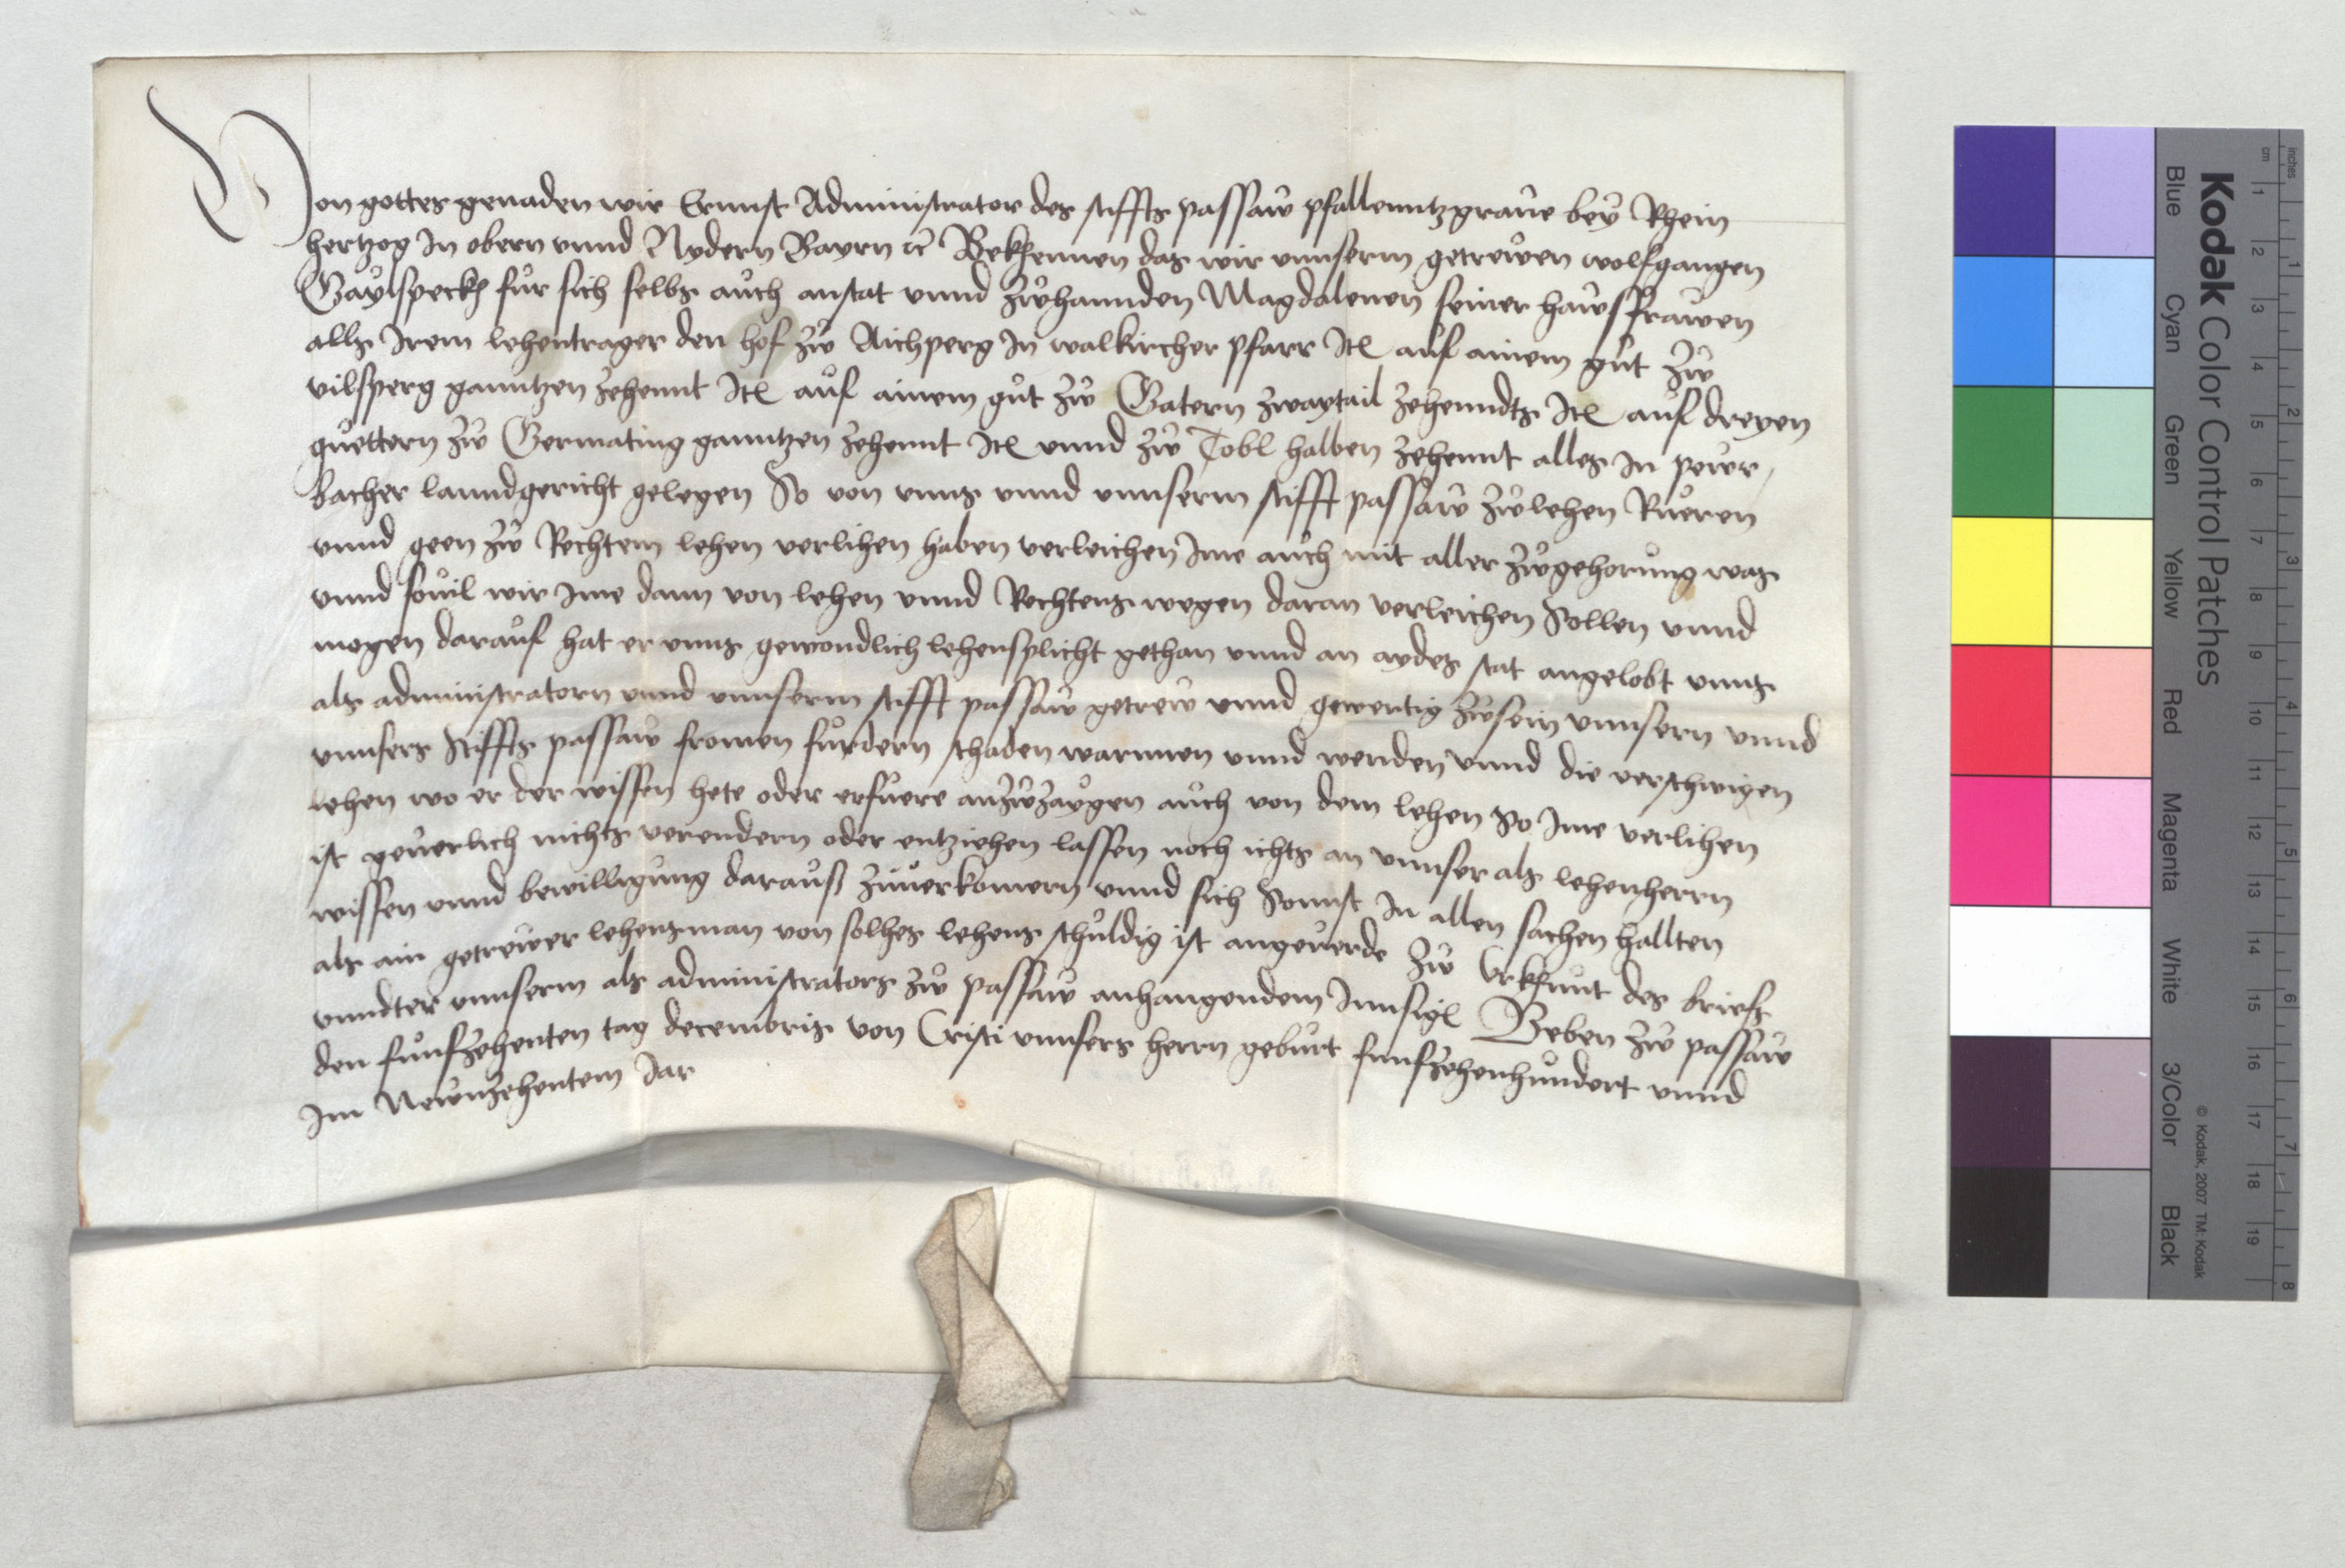 Von gottes genaden wir Ernnst Administrator des stiffts passaw pfallenntzgraue bey Rhein
hertzog In obern vnnd Nydern Bayrn ꝛc Bekhennen das wir vnnserm getrewen wolfgangen
Gaylspeckh fur sich selbs auch anstat vnnd zwhannden Magdalenen seiner hawsfrawen
alls Irem lehentrager den hof zw Aichperg In walkircher pfarr Itl auf ainem gut zw
vilsperg ganntzen zehennt Itl auf ainem gut zw Gatern zwaytail zehenndts Itl auf dreyen
guettern zw Germating ganntzen zehennt Itl vnnd zw Tobl halben zehennt alles In pewr
bacher lanndgericht gelegen So von vnns vnnd vnnserm stifft passaw zwlehen Rueren
vnnd geen zw Rechtem lehen verlihen haben verleichen Ime auch mit aller zwgehorung was
vnnd souil wir Ime dann von lehen vnnd Rechtens wegen daran verleichen Sollen vnnd
mogen darauf hat er vnns gewondlich lehensplicht gethan vnnd an aydes stat angelobt vnns
als administratorn vnnd vnnserm stifft passaw getrew vnnd gewertig zwsein vnnsern vnnd
vnnsers Stiffts passaw fromen furdern schaden warnnen vnnd wenden vnnd die verschwigen
lehen wo er der wissen hete oder erfuere anzwzaygen auch von dem lehen So Ime verlihen
ist geuerlich nichts verendern oder entziehen lassen noch ichts an vnnser als lehenherrn
wissen vnnd bewilligung darauß zuuerkomern vnnd sich Sonnst In allen sachen hallten
als ain getrewer lehensman von solhes lehens schuldig ist angeuerde Zw Vrkhunt des briefs
vnndter vnnserm als administrators zw passaw anhangendem Innsigl Geben zw passaw
den funfzehenten tag decembris von Cristi vnnsers herrn geburt funfzehenhundert vnnd
Im Newnzehentem Jar
Kodak Color Control Patches
Blue Cyan Green Yellow Red Magenta White 3/Color Black
© Kodak, 2007 TM: Kodak
inches 1 2 3 4 5 6 7 8
cm 1 2 3 4 5 6 7 8 9 10 11 12 13 14 15 16 17 18 19